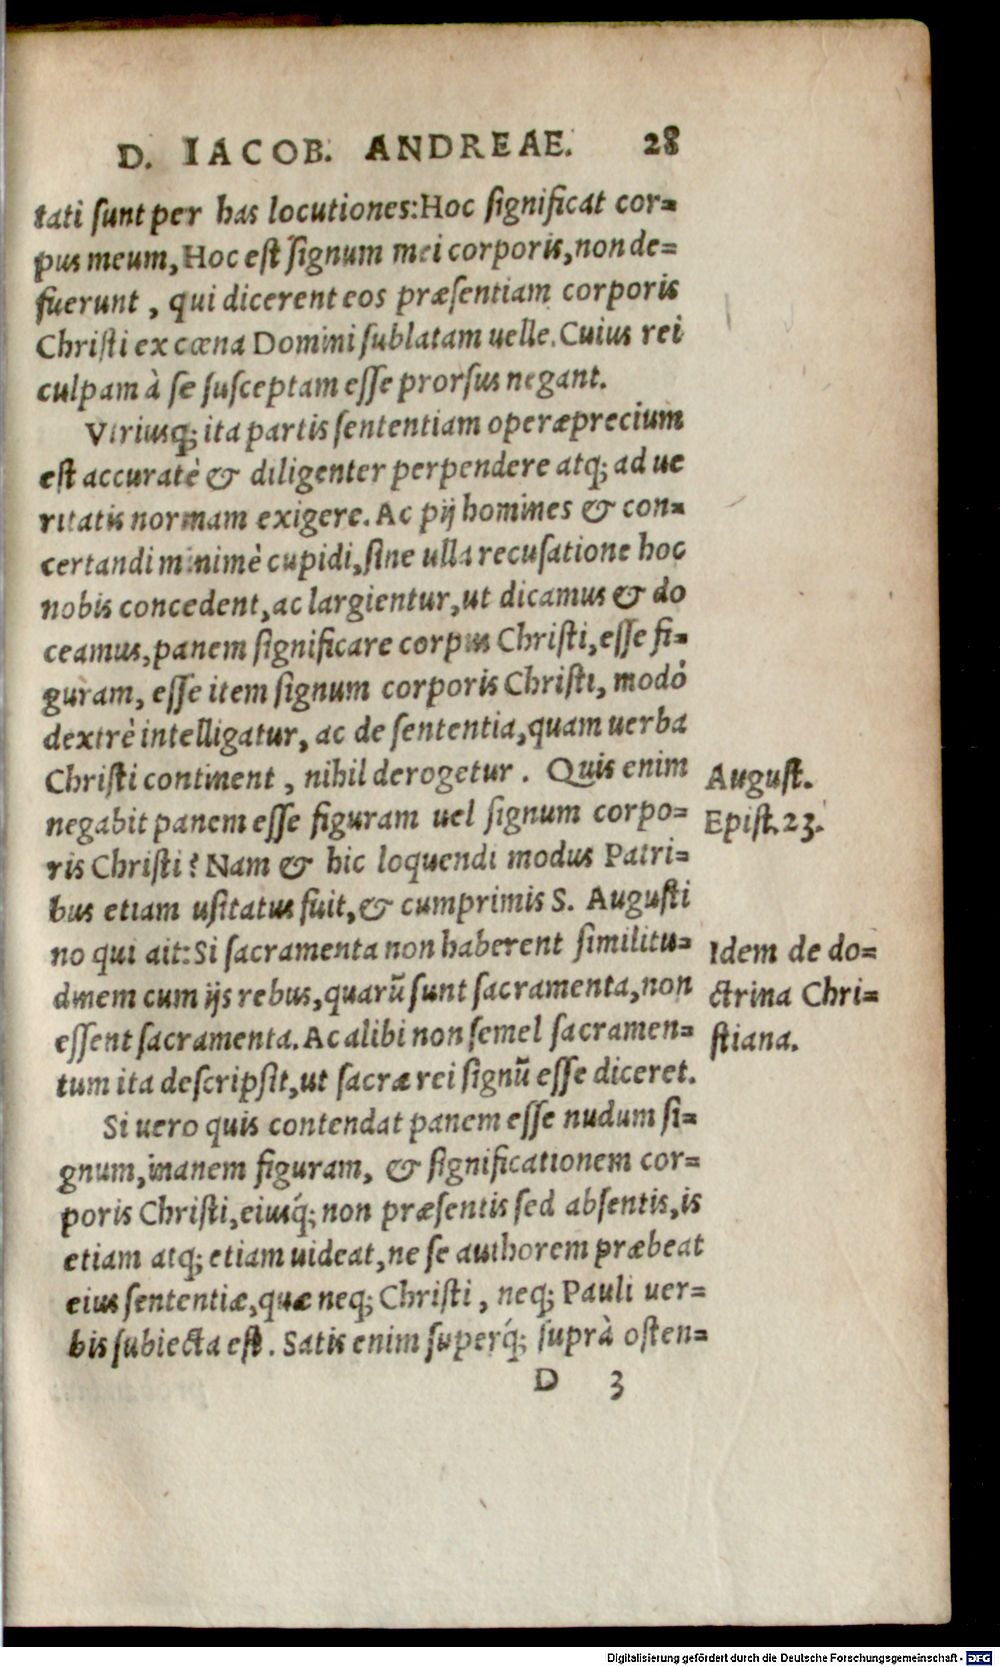 D. IACOB. ANDREAE. 28
tati sunt per has locutiones: Hoc significat cor=
pus meum, Hoc est signum mei corporis, non de=
fuerunt, qui dicerent eos præsentiam corporis
Christi ex cœna Domini sublatam uelle. Cuius rei
culpam à se susceptam esse prorsus negant.
Vtriusq; ita partis sententiam operæprecium
est accuratè & diligenter perpendere atq; ad ue
ritatis normam exigere. Ac pij homines & con=
certandi minimè cupidi, sine ulla recusatione hoc
nobis concedent, ac largientur, ut dicamus & do
ceamus, panem significare corpus Christi, esse fi=
guram, esse item signum corporis Christi, modò
dextrè intelligatur, ac de sententia, quam uerba
Christi continent, nihil derogetur. Quis enim
negabit panem esse figuram uel signum corpo=
ris Christi? Nam & hic loquendi modus Patri=
bus etiam usitatus fuit, & cumprimis S. Augusti
no qui ait: Si sacramenta non haberent similitu=
dinem cum ijs rebus, quarū sunt sacramenta, non
essent sacramenta. Ac alibi non semel sacramen=
tum ita descripsit, ut sacræ rei signū esse diceret.
Si uero quis contendat panem esse nudum si=
gnum, inanem figuram, & significationem cor=
poris Christi, eiusq́; non præsentis sed absentis, is
etiam atq; etiam uideat, ne se authorem præbeat
eius sententiæ, quæ neq; Christi, neq; Pauli uer=
bis subiecta est. Satis enim superq́; suprà osten=
D 3
August.
Epist. 23.
Idem de do=
ctrina Chri=
stiana.
Digitalisierung gefördert durch die Deutsche Forschungsgemeinschaft - DFG